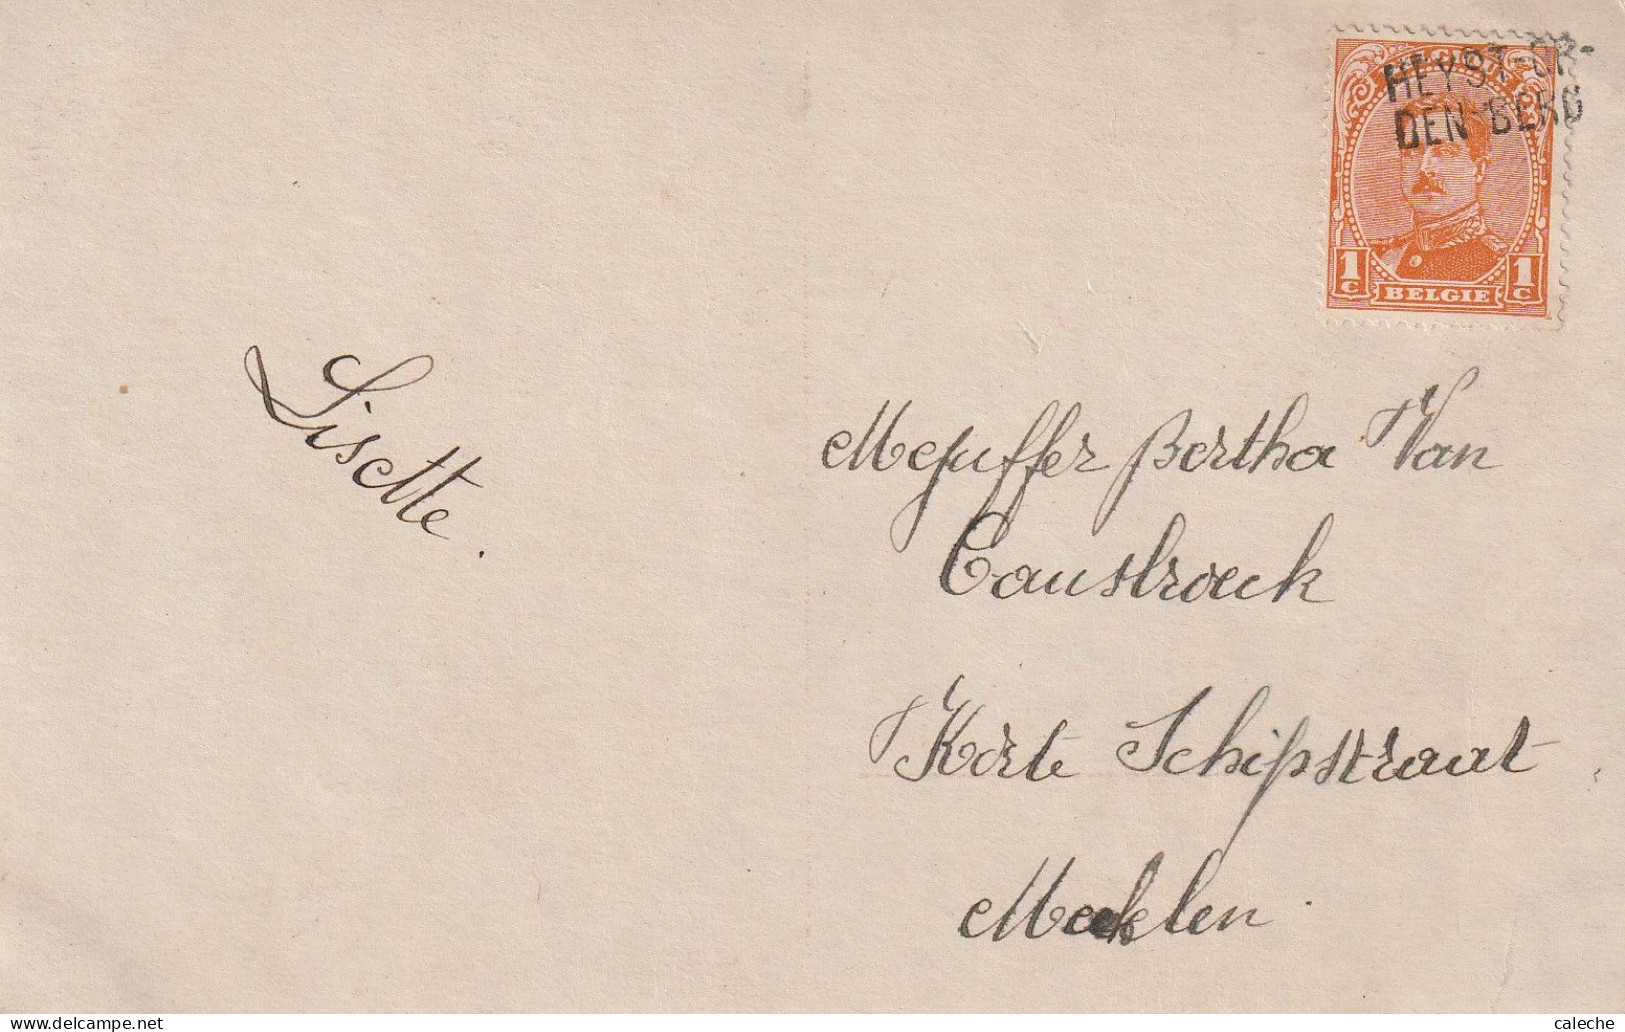 BELGIQUE
HEYST-OP-
DEN-BERG
1 C BELGIE 1 C
Lisette.
Mejuffer Bertha Van
Causbroeck
Korte Schipstraat
Mechelen.
delcampe.net
caleche